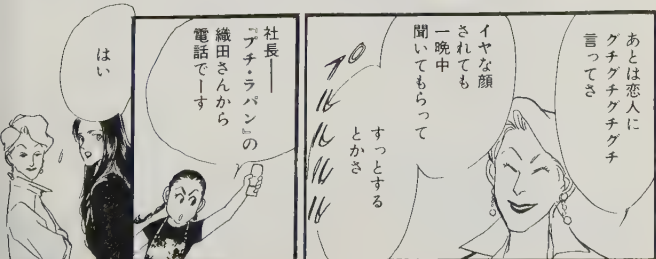 あとは恋人に
グチグチグチグチ
言ってさ
イヤな顔
されても
一晩中
聞いてもらって
すっとする
とかさ
プルルルル
社長――
『プチ・ラパン』の
織田さんから
電話でーす
はい